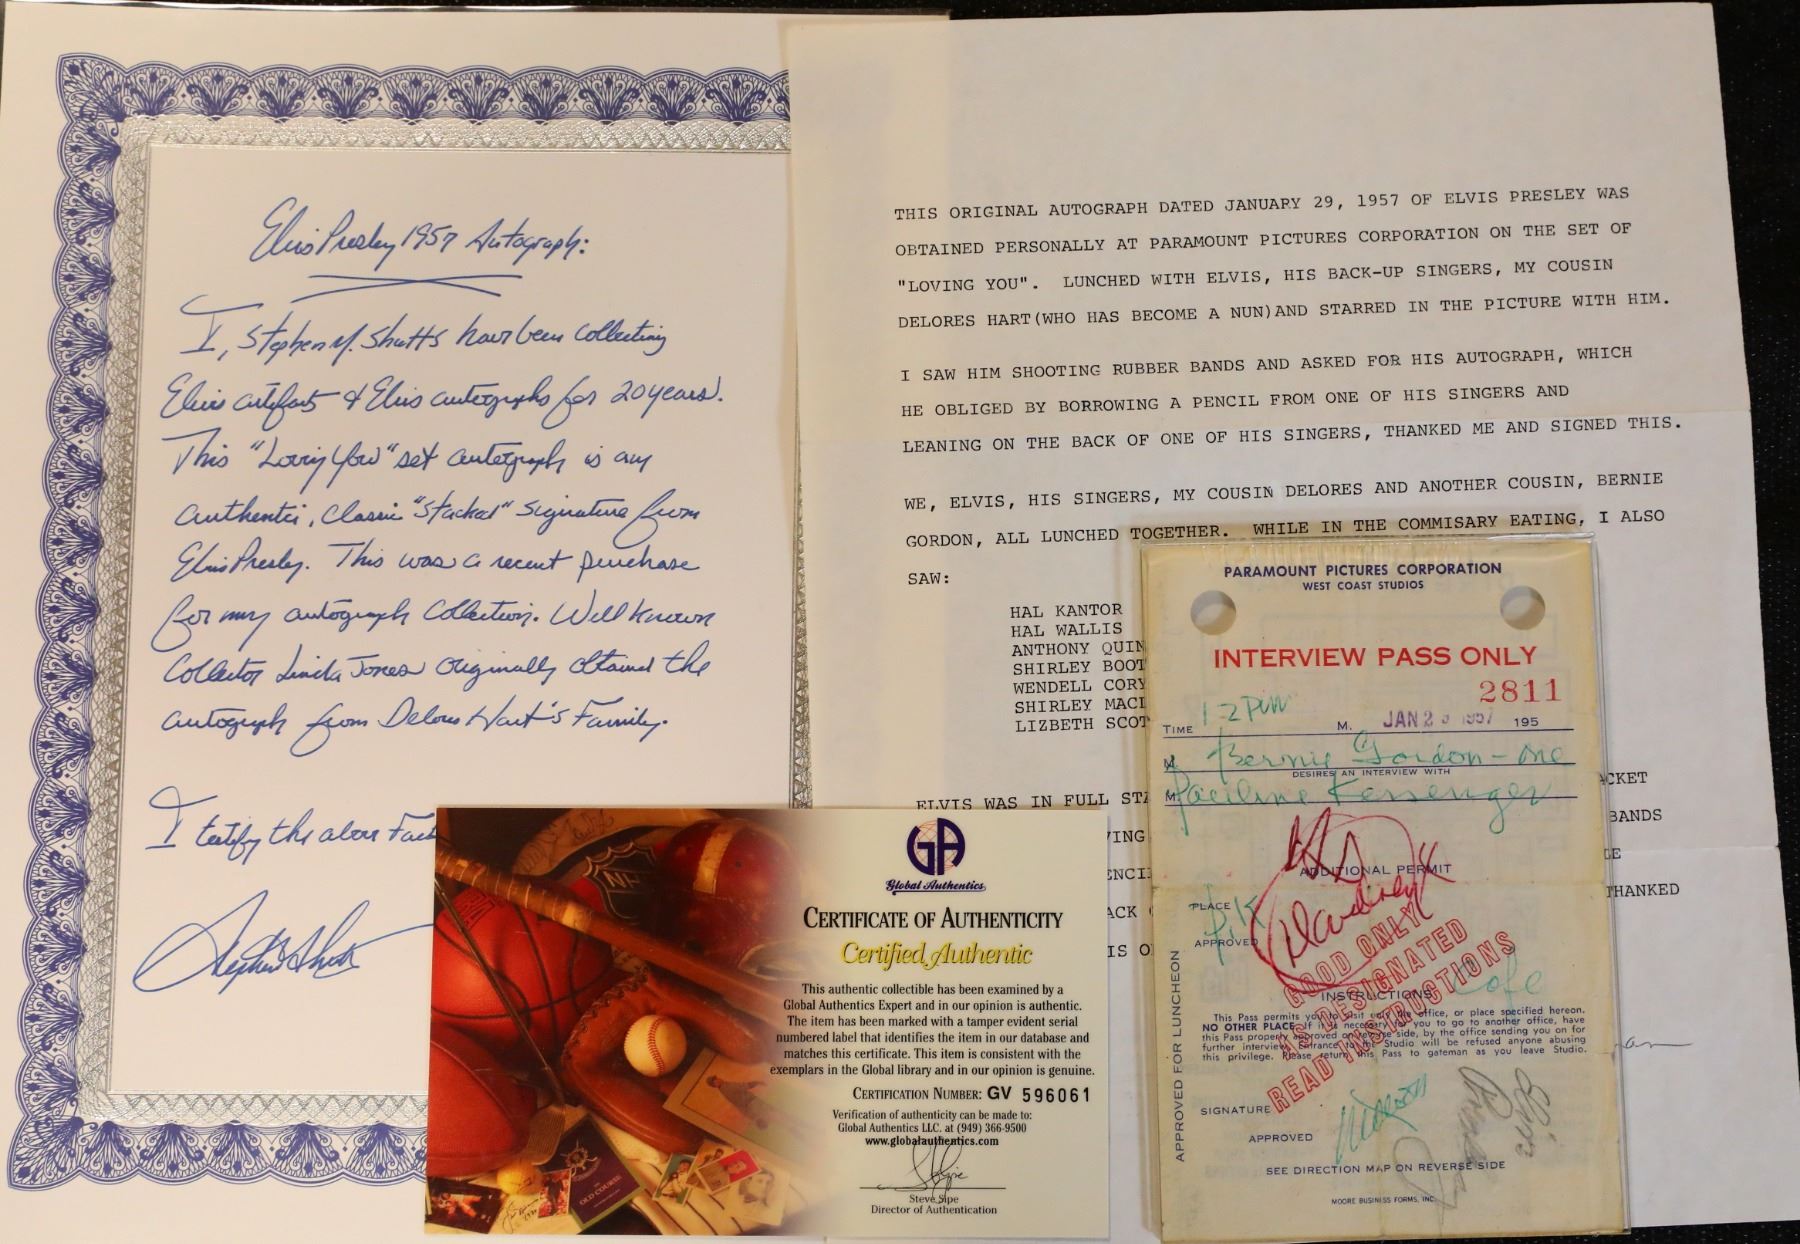 Elvis Presley 1957 Autograph:
I, Stephen M. Shutts have been collecting
Elvis artifacts & Elvis autographs for 20 years.
This "Loving You" set autograph is any
authentic, classic "stacked" signature from
Elvis Presley. This was a recent purchase
for my autograph collection. Well known
collector Linda Jones originally obtained the
autograph from Delores Hart's Family.
I testify the above
THIS ORIGINAL AUTOGRAPH DATED JANUARY 29, 1957 OF ELVIS PRESLEY WAS
OBTAINED PERSONALLY AT PARAMOUNT PICTURES CORPORATION ON THE SET OF
"LOVING YOU". LUNCHED WITH ELVIS, HIS BACK-UP SINGERS, MY COUSIN
DELORES HART(WHO HAS BECOME A NUN)AND STARRED IN THE PICTURE WITH HIM.
I SAW HIM SHOOTING RUBBER BANDS AND ASKED FOR HIS AUTOGRAPH, WHICH
HE OBLIGED BY BORROWING A PENCIL FROM ONE OF HIS SINGERS AND
LEANING ON THE BACK OF ONE OF HIS SINGERS, THANKED ME AND SIGNED THIS.
WE, ELVIS, HIS SINGERS, MY COUSIN DELORES AND ANOTHER COUSIN, BERNIE
GORDON, ALL LUNCHED TOGETHER. WHILE IN THE COMMISARY EATING, I ALSO
SAW:
HAL KANTOR
HAL WALLIS
ANTHONY QUIN
SHIRLEY BOOT
WENDELL CORY
SHIRLEY MACL
LIZBETH SCOT
ELVIS WAS IN FULL STA
CKET
VING
BANDS
ENCI
LE
ACK
THANKED
IS O
GA
Global Authentics
CERTIFICATE OF AUTHENTICITY
Certified Authentic
This authentic collectible has been examined by a
Global Authentics Expert and in our opinion is authentic.
The item has been marked with a tamper evident serial
numbered label that identifies the item in our database and
matches this certificate. This item is consistent with the
exemplars in the Global library and in our opinion is genuine.
CERTIFICATION NUMBER: GV 596061
Verification of authenticity can be made to:
Global Authentics LLC. at (949) 366-9500
www.globalauthentics.com
Steve Sipe
Director of Authentication
PARAMOUNT PICTURES CORPORATION
WEST COAST STUDIOS
INTERVIEW PASS ONLY
2811
TIME 1-2 PM M. JAN 29 1957 195
M. Bernie Gordon - one
DESIRES AN INTERVIEW WITH
M Pauline Kessenger
ADDITIONAL PERMIT
PLACE
APPROVED
GOOD ONLY
AS DESIGNATED
READ INSTRUCTIONS
INSTRUCTIONS
This Pass permits you to visit only the office, or place specified hereon.
NO OTHER PLACE. If it is necessary for you to go to another office, have
this Pass properly approved on reverse side, by the office sending you on for
further interview. Entrance to the Studio will be refused anyone abusing
this privilege. Please return this Pass to gateman as you leave Studio.
APPROVED FOR LUNCHEON
SIGNATURE
Elvis
Presley
APPROVED
SEE DIRECTION MAP ON REVERSE SIDE
MOORE BUSINESS FORMS, INC.